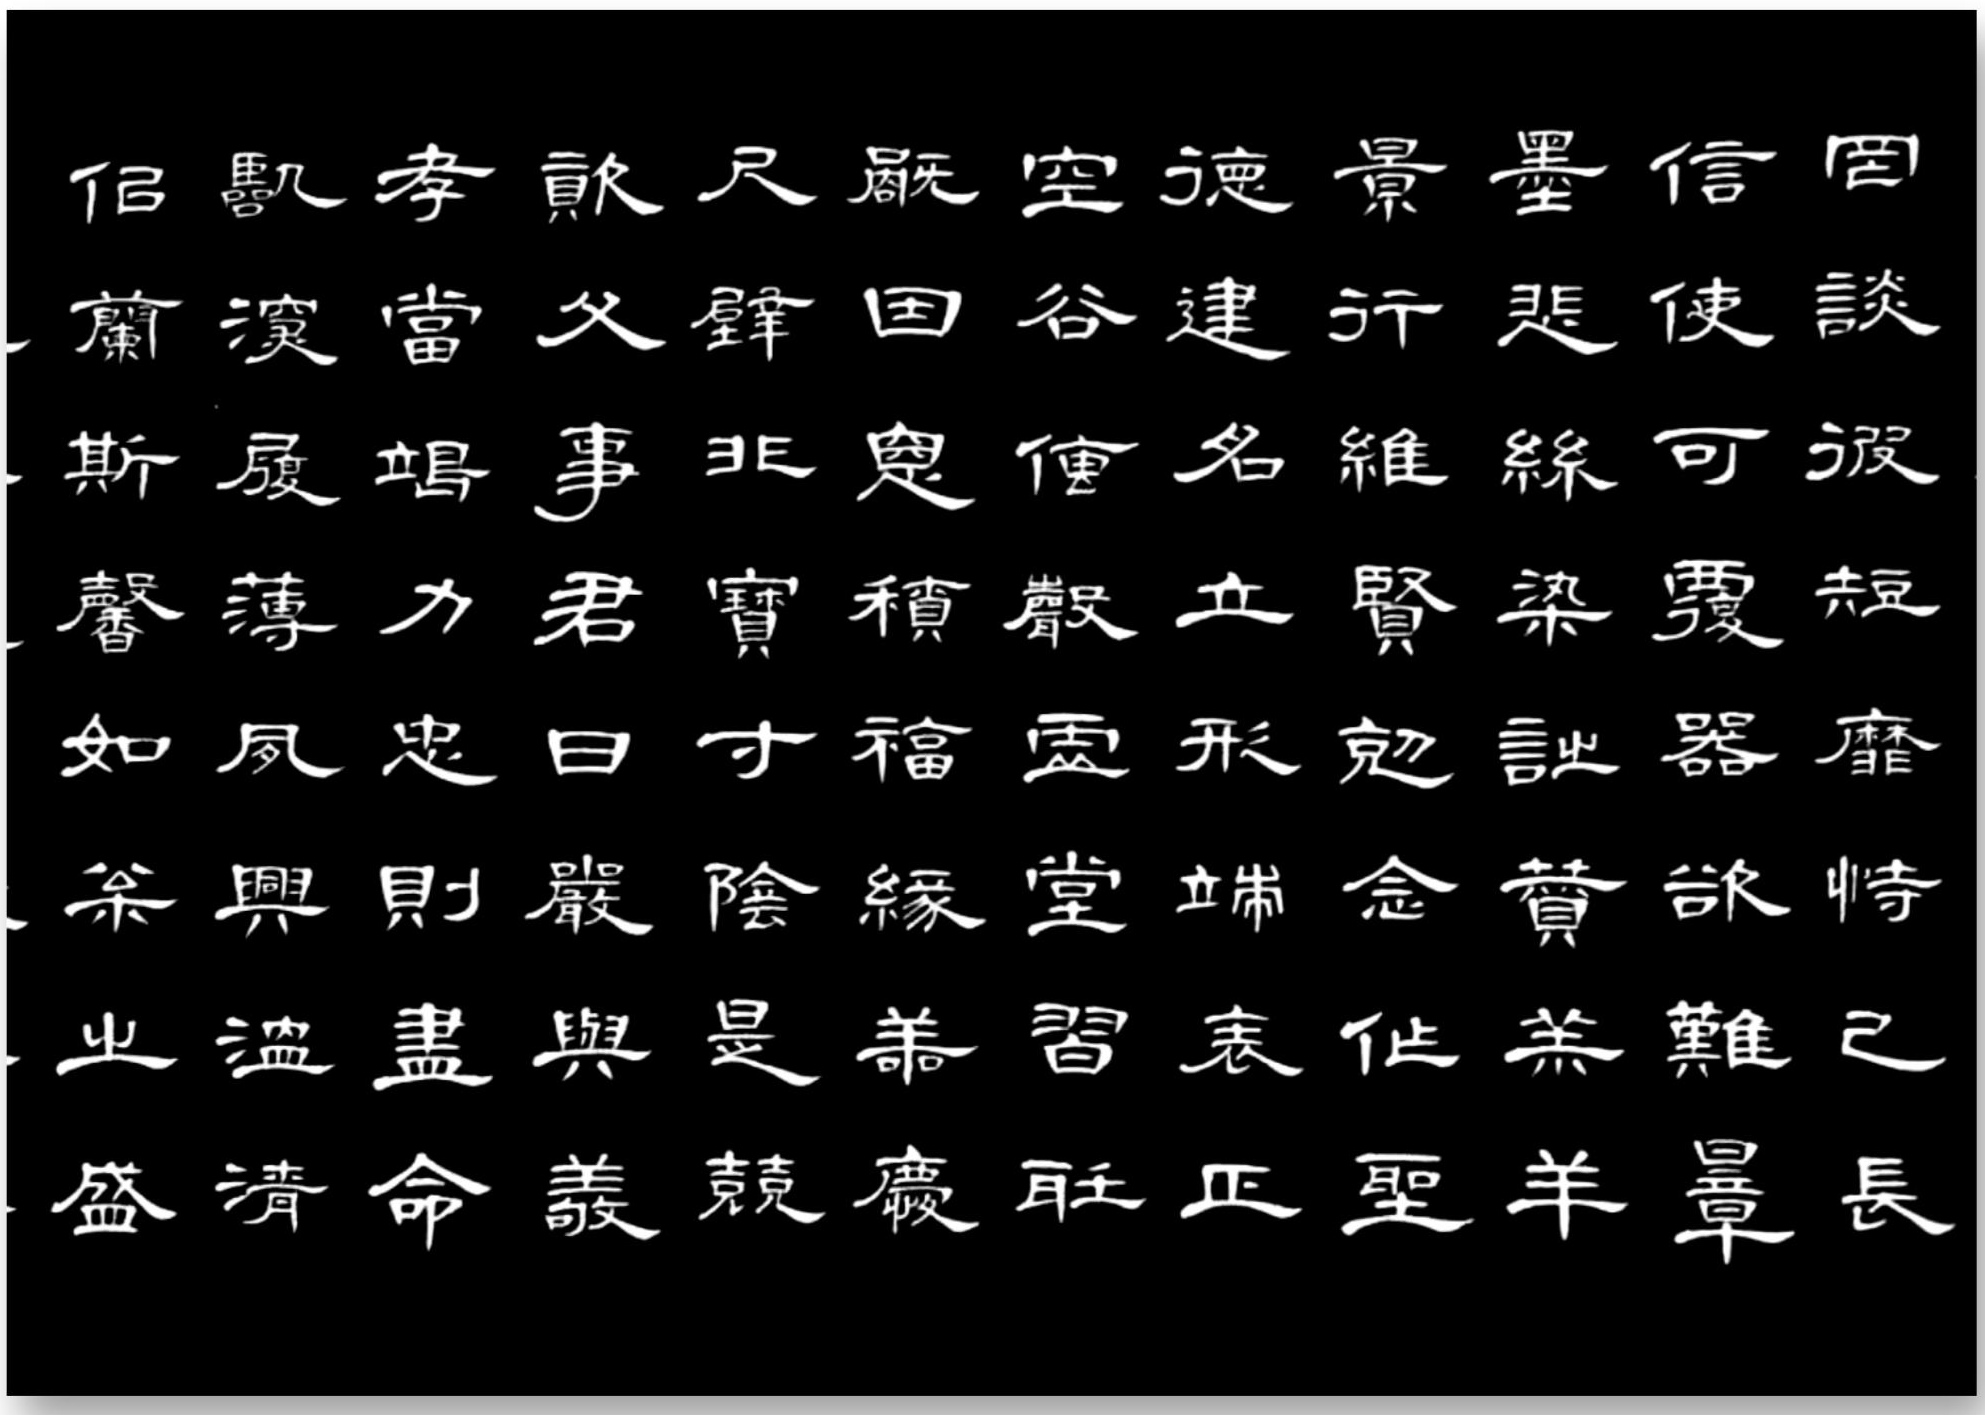 罔談彼短靡恃己長
信使可覆器欲難量
墨悲絲染詩贊羔羊
景行維賢剋念作聖
德建名立形端表正
空谷傳聲虛堂習聽
禍因惡積福緣善慶
尺璧非寶寸陰是競
資父事君曰嚴與敬
孝當竭力忠則盡命
臨深履薄夙興溫清
似蘭斯馨如松之盛